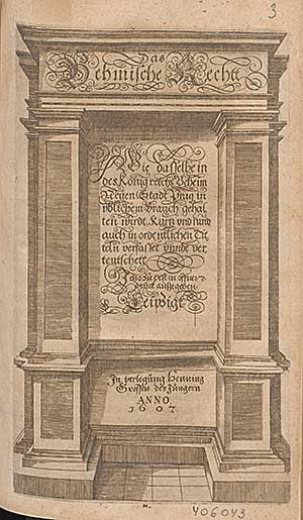 3
Das
Behmische Recht
Wie dasselbe in
des Königreichs Beheim
Newen Stadt Prag in
üblichem Brauch gehal
ten wirdt, Kurtz und rund
auch in ordentlichen Tit
teln verfasset unndt ver
teutschett
Leipzigk
In verlegung Henning
Grossen des Jüngern
ANNO
1607
406043